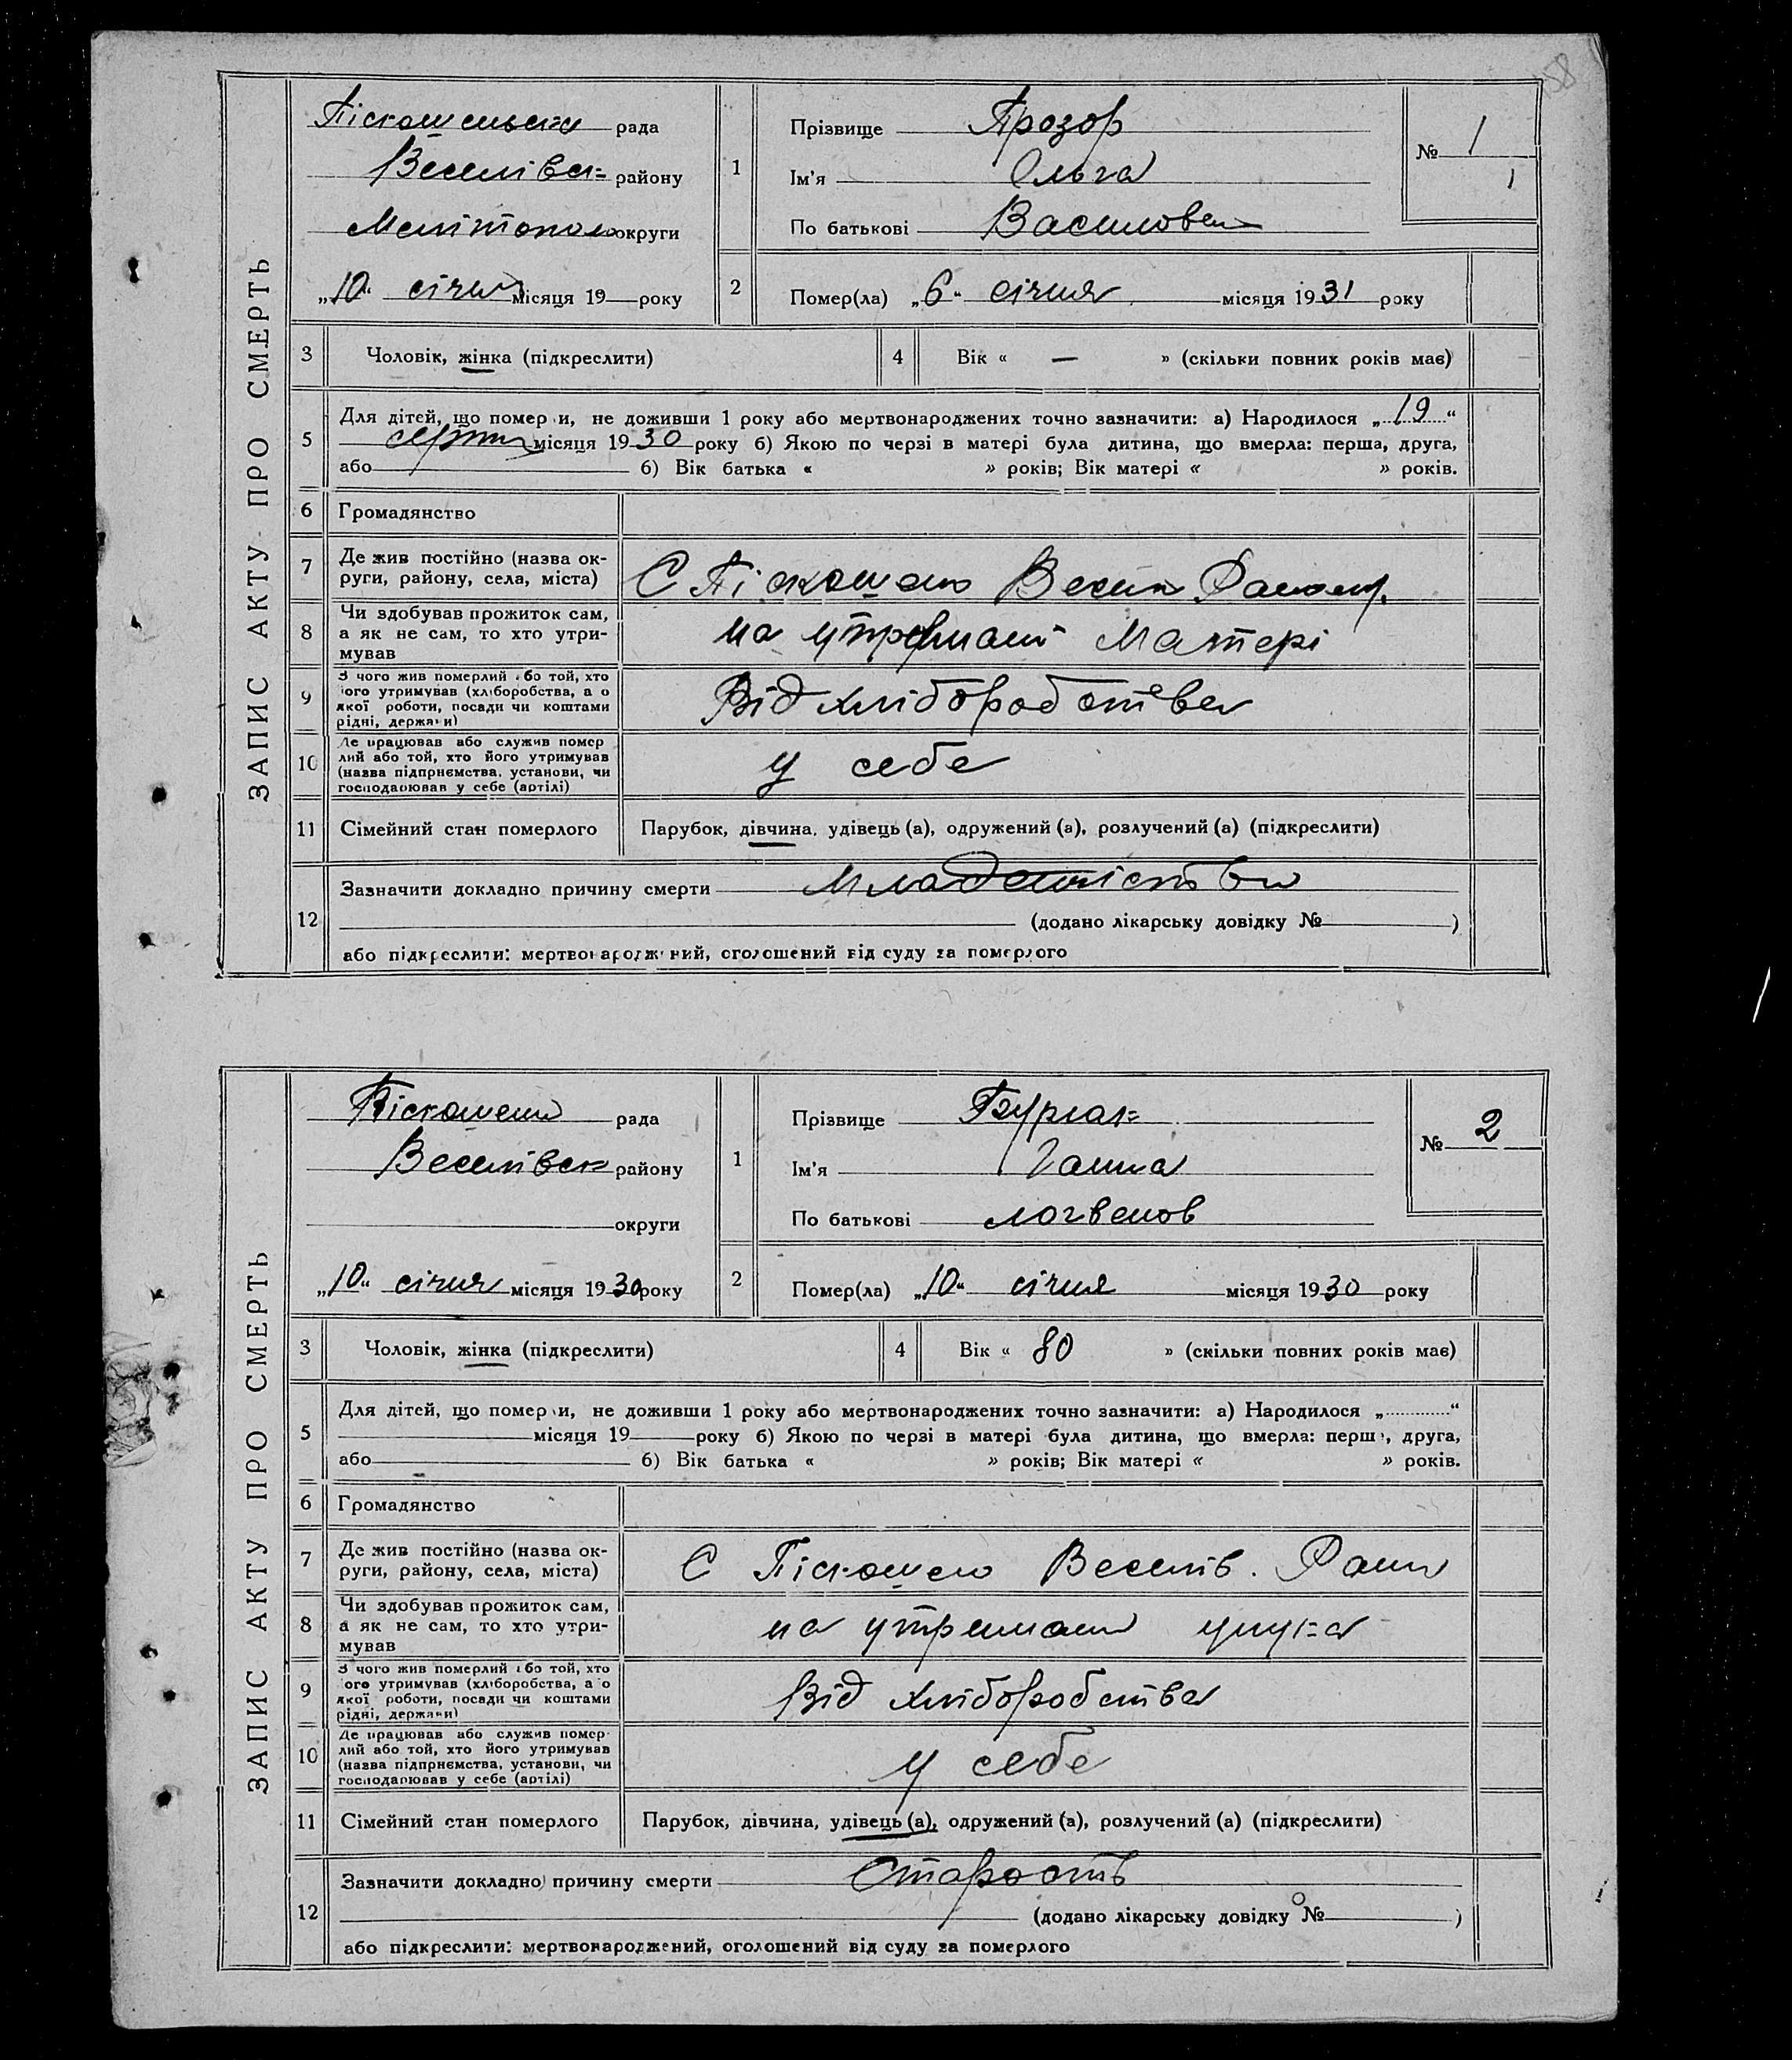 158
ЗАПИС АКТУ ПРО СМЕРТЬ
Піскошельськ рада
Веселівськ району
Мелітополь округи
„10“ січня місяця 19 року
1
Прізвище Прозор
Ім'я Ольга
По батькові Василовн
№ 1
1
2
Помер(ла) „6“ січня місяця 1931 року
3
Чоловік, жінка (підкреслити)
4
Вік « — » (скільки повних років має)
5
Для дітей, що померли, не доживши 1 року або мертвонароджених точно зазначити: а) Народилося „19“
серпня місяця 1930 року б) Якою по черзі в матері була дитина, що вмерла: перша, друга,
або б) Вік батька « » років; Вік матері « » років.
6
Громадянство
7
Де жив постійно (назва ок-
руги, району, села, міста)
С Піскошено Весел Району
8
Чи здобував прожиток сам,
а як не сам, то хто утри-
мував
на утриманні Матері
9
З чого жив померлий або той, хто
його утримував (хліборобства, а о
якої роботи, посади чи коштами
рідні, держави)
Від хліборобства
10
Де працював або служив помер
лий або той, хто його утримував
(назва підприємства, установи, чи
господарював у себе (артілі)
у себе
11
Сімейний стан померлого
Парубок, дівчина, удівець (а), одружений (а), розлучений (а) (підкреслити)
12
Зазначити докладно причину смерти
(додано лікарську довідку № )
або підкреслити: мертвонароджений, оголошений від суду за померлого
ЗАПИС АКТУ ПРО СМЕРТЬ
Піскошен рада
Веселівськ району
округи
„10“ січня місяця 1930 року
1
Прізвище
Ім'я Ганна
По батькові Логвенов
№ 2
2
Помер(ла) „10“ січня місяця 1930 року
3
Чоловік, жінка (підкреслити)
4
Вік « 80 » (скільки повних років має)
5
Для дітей, що померли, не доживши 1 року або мертвонароджених точно зазначити: а) Народилося „ “
місяця 19 року б) Якою по черзі в матері була дитина, що вмерла: перша, друга,
або б) Вік батька « » років; Вік матері « » років.
6
Громадянство
7
Де жив постійно (назва ок-
руги, району, села, міста)
С Піскошено Веселів. Райн
8
Чи здобував прожиток сам,
а як не сам, то хто утри-
мував
на утриманні унука
9
З чого жив померлий або той, хто
його утримував (хліборобства, а о
якої роботи, посади чи коштами
рідні, держави)
Від хліборобства
10
Де працював або служив помер
лий або той, хто його утримував
(назва підприємства, установи, чи
господарював у себе (артілі)
у себе
11
Сімейний стан померлого
Парубок, дівчина, удівець (а), одружений (а), розлучений (а) (підкреслити)
12
Зазначити докладно причину смерти Старость
(додано лікарську довідку № )
або підкреслити: мертвонароджений, оголошений від суду за померлого